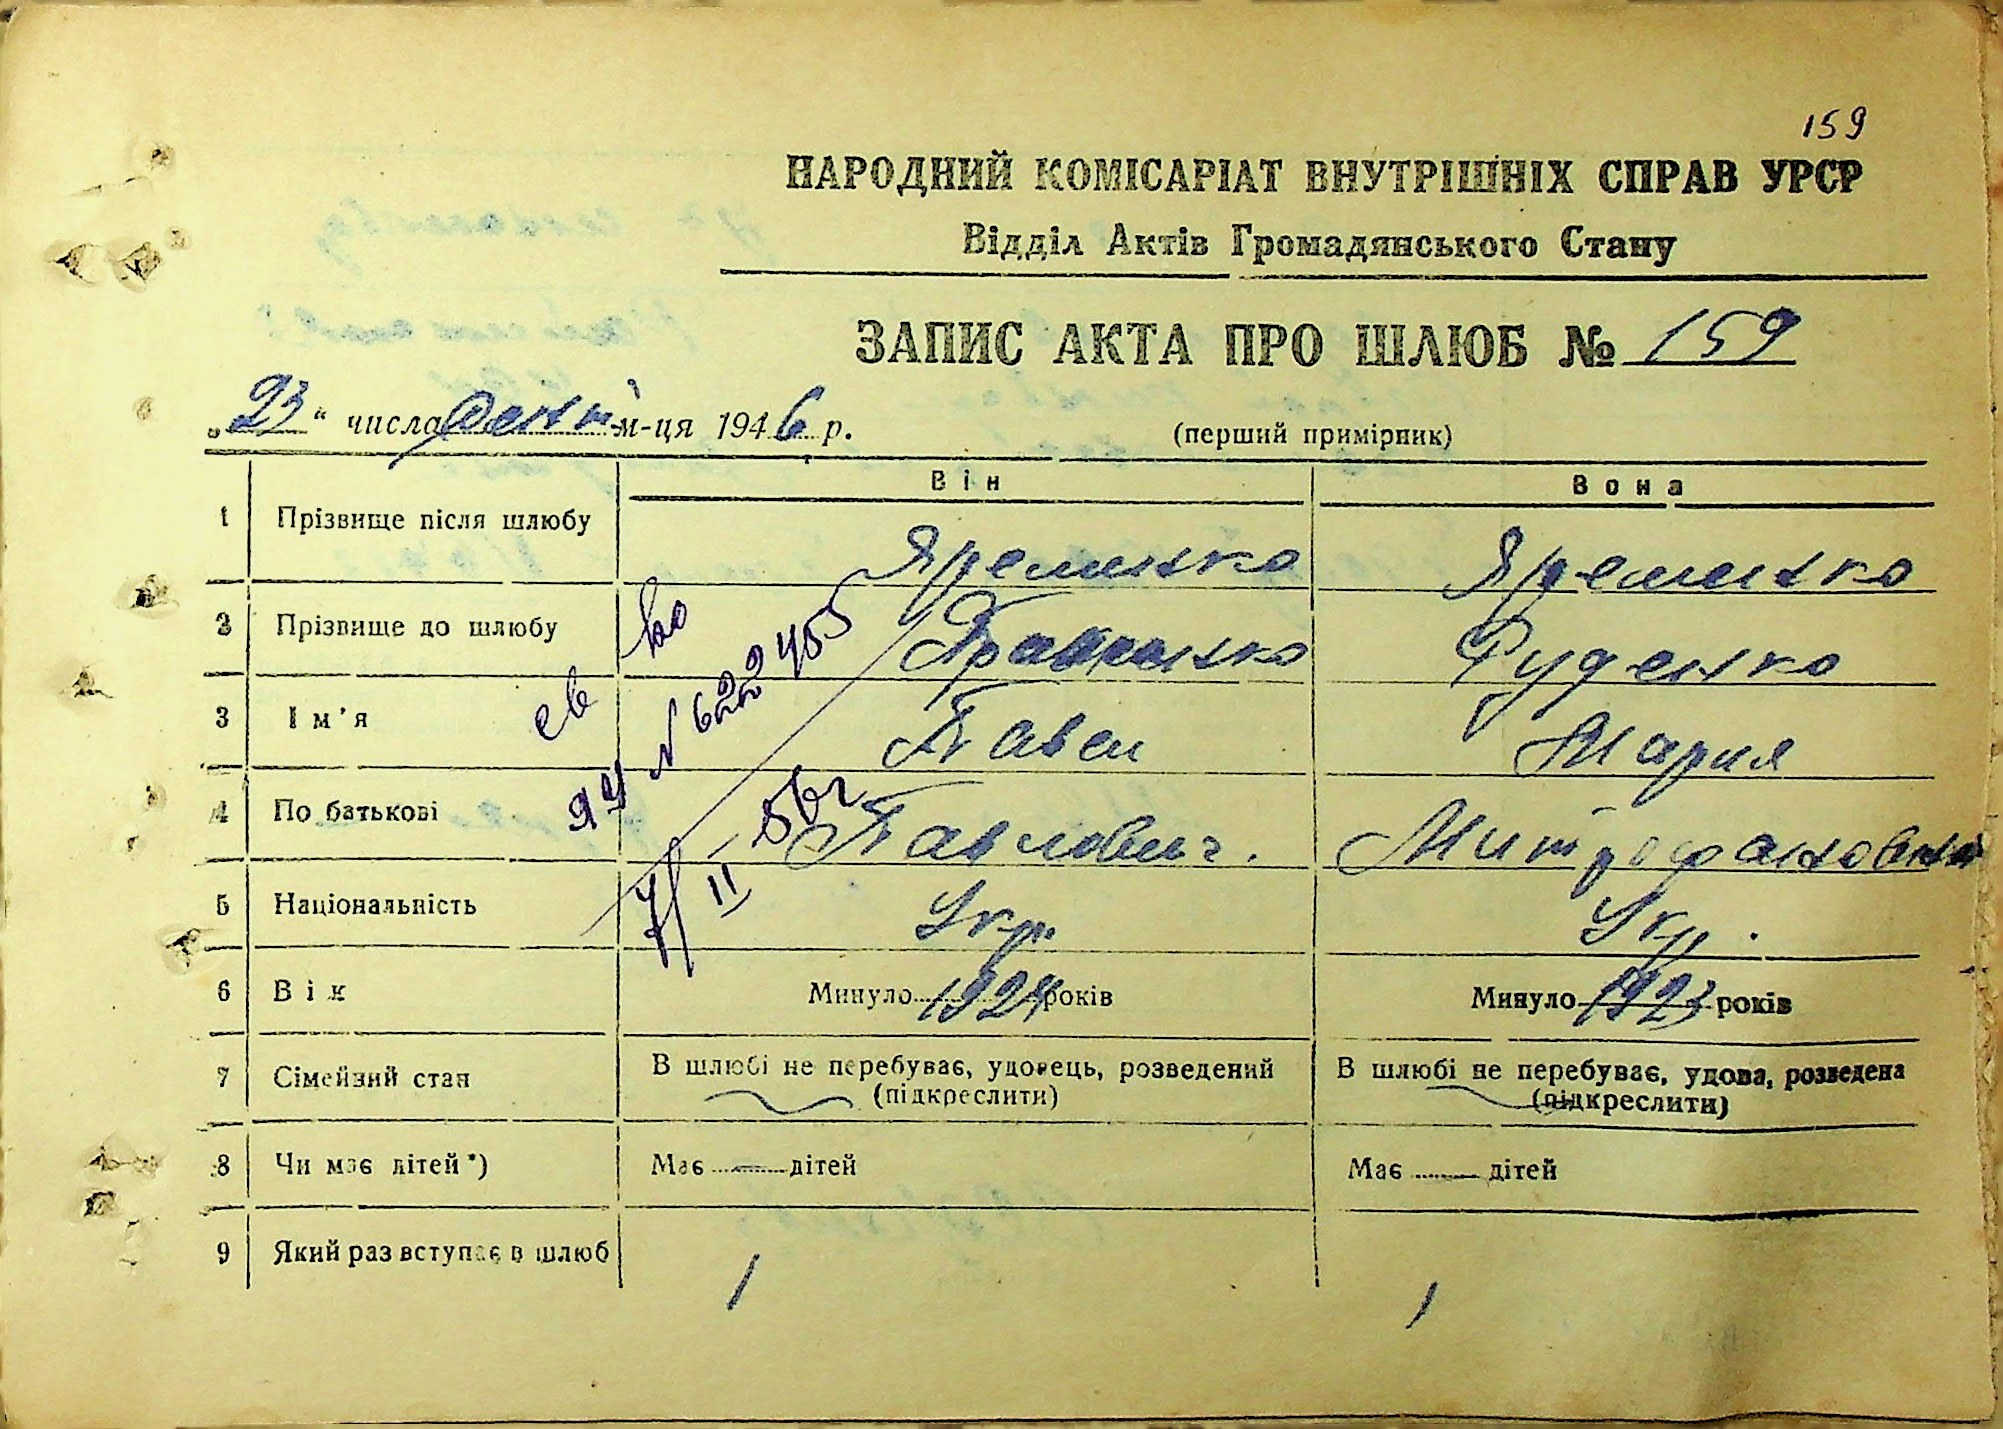 159
НАРОДНИЙ КОМІСАРІАТ ВНУТРІШНІХ СПРАВ УРСР
Відділ Актів Громадянського Стану
ЗАПИС АКТА ПРО ШЛЮБ № 159
„23“ числа м-ця 1946 р.
(перший примірник)
Він Вона
1 Прізвище після шлюбу Яременко Яременко
2 Прізвище до шлюбу Руденко
3 Ім'я Павел Мария
4 По батькові Павлович. Митрофановна
5 Національність Укр. Укр.
6 Вік Минуло 1924 років Минуло 1923 років
7 Сімейний стан В шлюбі не перебуває, удовець, розведений (підкреслити) В шлюбі не перебуває, удова, розведена (підкреслити)
8 Чи має дітей*) Має — дітей Має — дітей
9 Який раз вступає в шлюб 1 1
св во
ЯЧ № 6222455
7/II-56г